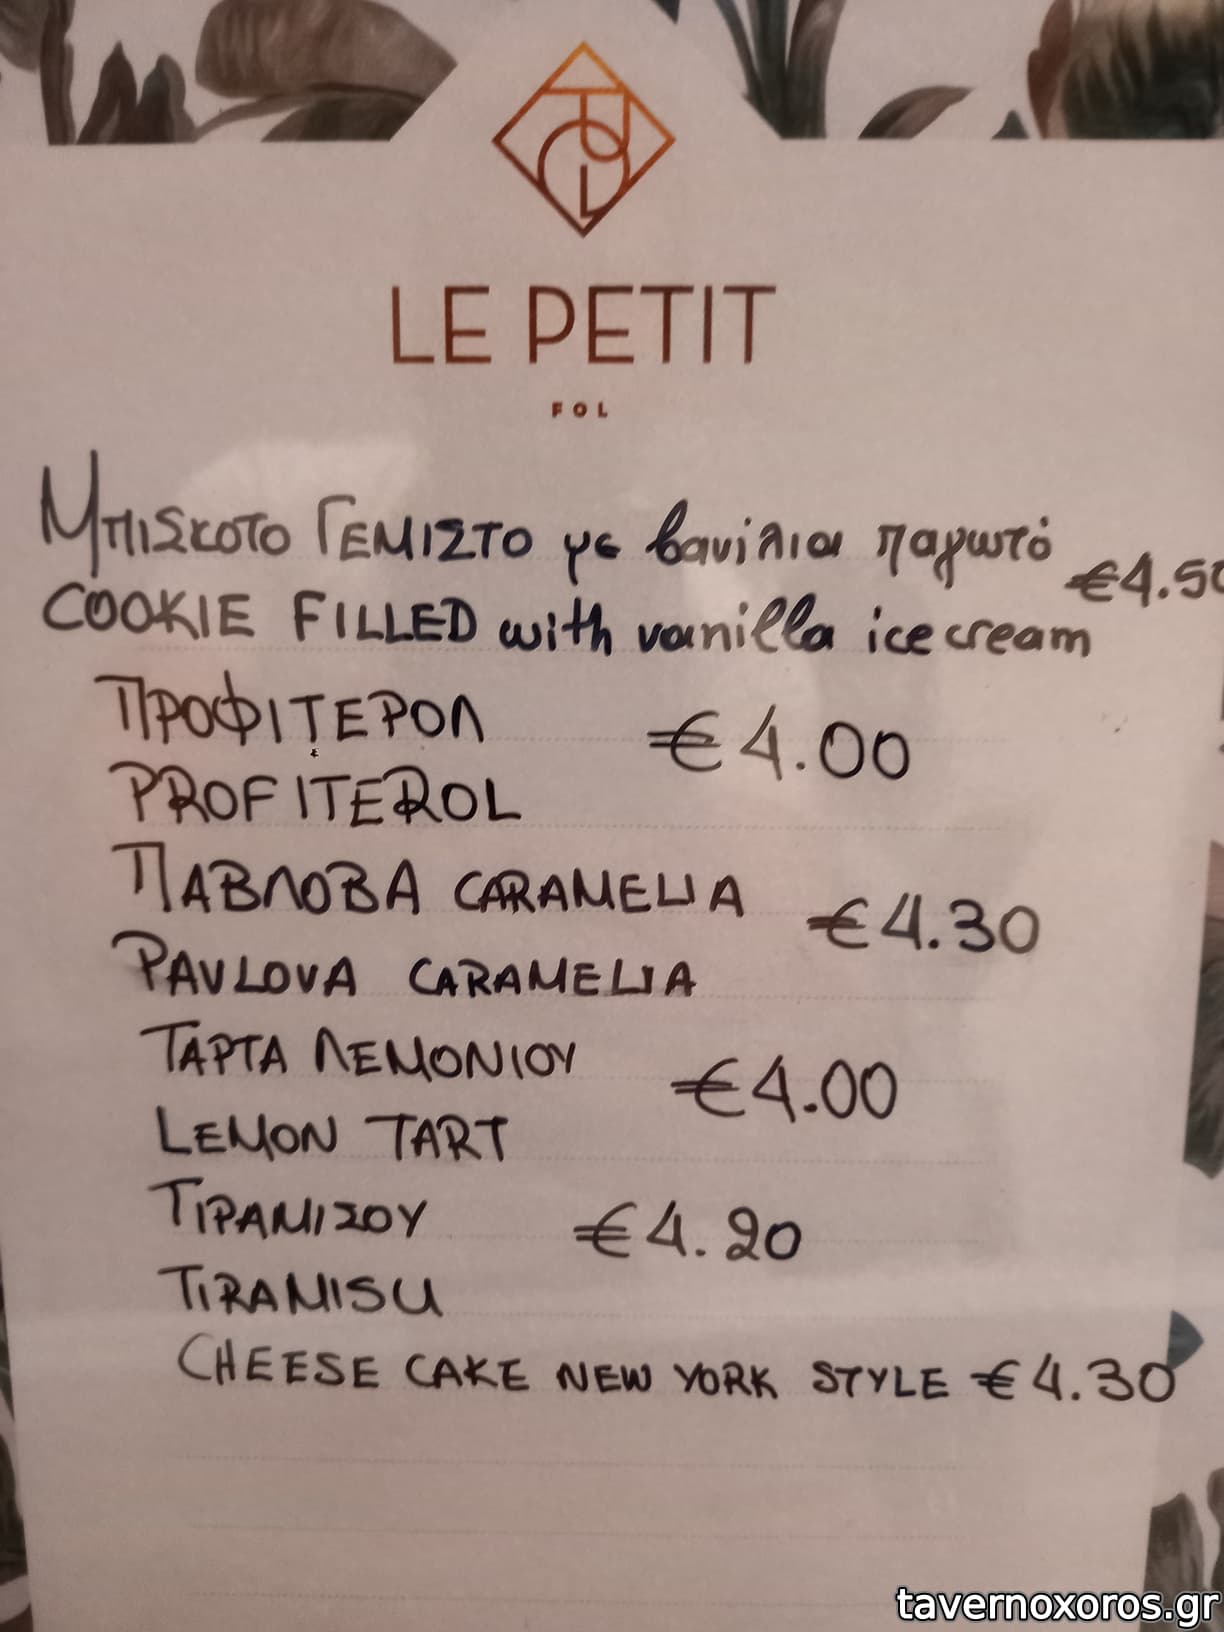 LE PETIT
FOL
Μπισκοτο ΓΕΜΙΣΤΟ με βανίλια παγωτό €4.50
COOKIE FILLED with vanilla ice cream
ΠΡΟΦΙΤΕΡΟΛ €4.00
PROFITEROL
ΠΑΒΛΟΒΑ CARAMELIA €4.30
PAVLOVA CARAMELIA
ΤΑΡΤΑ ΛΕΜΟΝΙΟΥ €4.00
LEMON TART
ΤΙΡΑΜΙΣΟΥ €4.20
TIRAMISU
CHEESE CAKE NEW YORK STYLE €4.30
tavernoxoros.gr